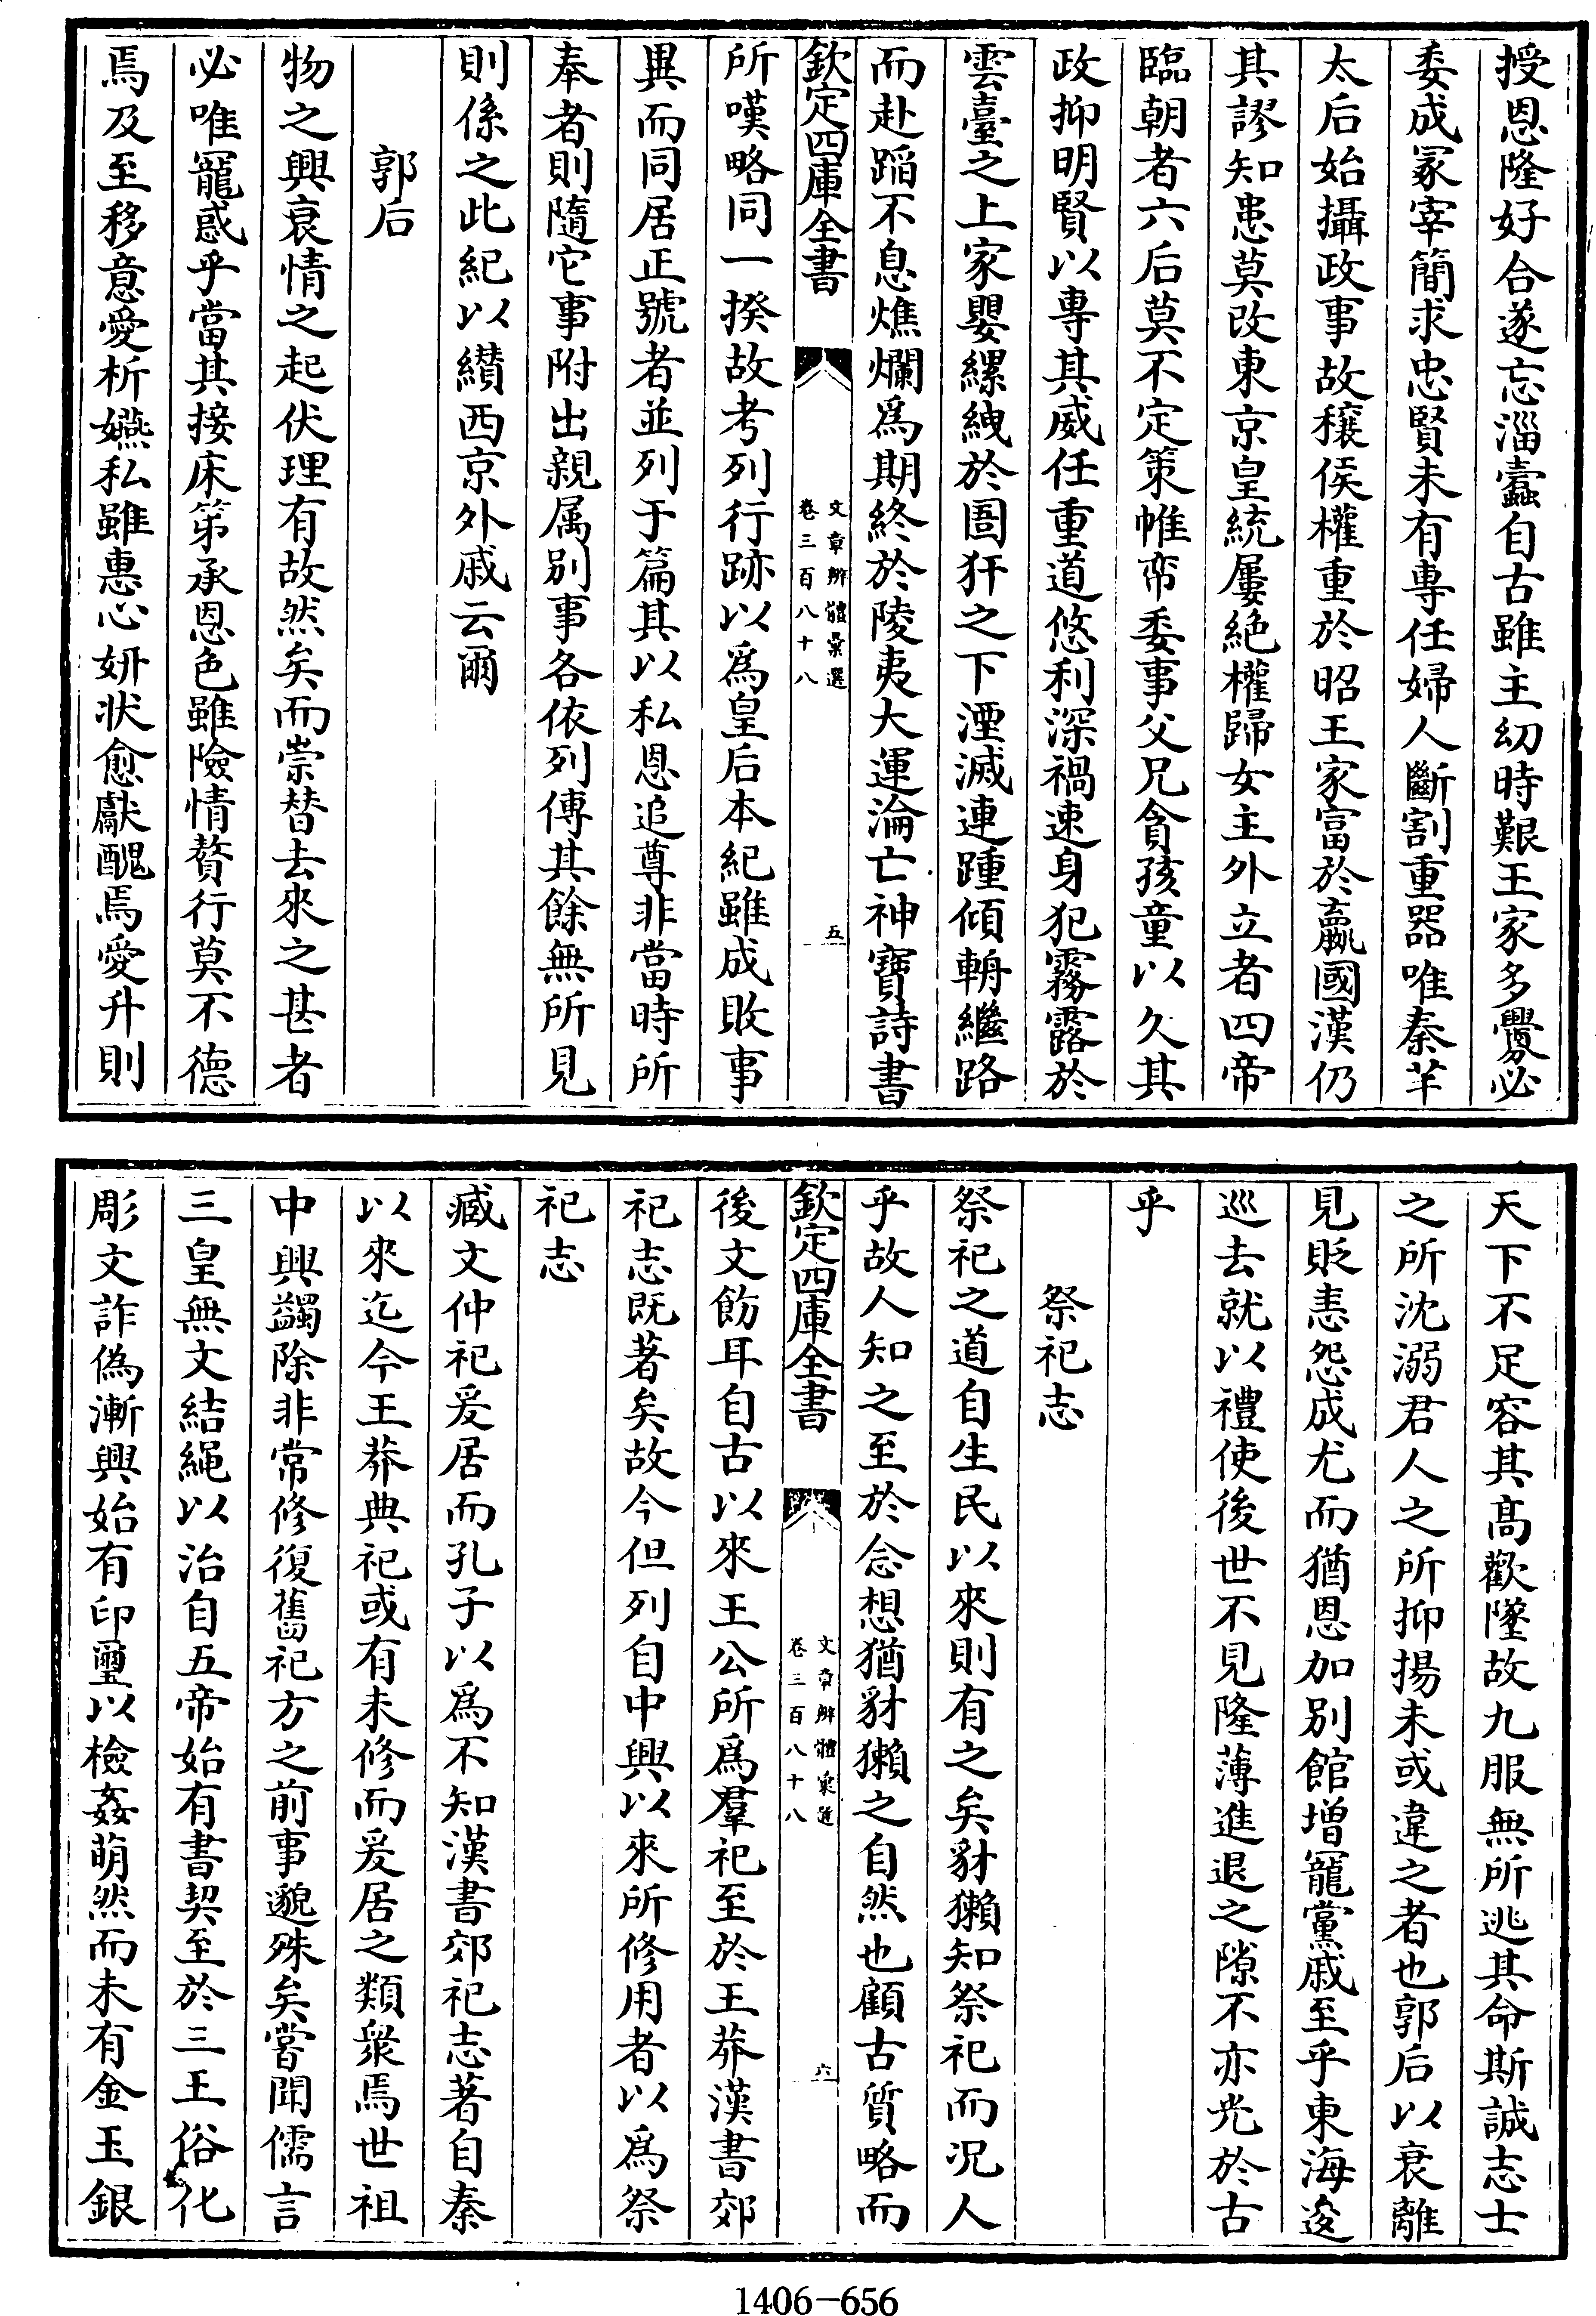 授恩隆好合遂忘淄蠹自古雖主幼時艱王家多釁必
委成冢宰簡求忠賢未有專任婦人斷割重器唯秦羋
太后始攝政事故穰侯權重於昭王家富於嬴國漢仍
其謬知患莫改東京皇統屢絕權歸女主外立者四帝
臨朝者六后莫不定策帷帟委事父兄貪孩童以久其
政抑明賢以專其威任重道悠利深禍速身犯霧露於
雲臺之上家嬰縲絏於圄犴之下湮滅連踵傾輈繼路
而赴蹈不息燋爛為期終於陵夷大運淪亡神寶詩書
欽定四庫全書
文章辨體彙選
卷三百八十八
五
所嘆略同一揆故考列行跡以為皇后本紀雖成敗事
異而同居正號者並列于篇其以私恩追尊非當時所
奉者則隨它事附出親属别事各依列傳其餘無所見
則係之此紀以纘西京外戚云爾
郭后
物之興衰情之起伏理有故然矣而崇替去來之甚者
必唯寵惑乎當其接床笫承恩色雖險情贅行莫不德
焉及至移意愛析嬿私雖惠心妍狀愈獻醜焉愛升則
天下不足容其髙歡墜故九服無所逃其命斯誠志士
之所沈溺君人之所抑揚未或違之者也郭后以衰離
見貶恚怨成尤而猶恩加别館增寵黨戚至乎東海逡
巡去就以禮使後世不見隆薄進退之隙不亦光於古
乎
祭祀志
祭祀之道自生民以來則有之矣豺獺知祭祀而況人
乎故人知之至於念想猶豺獺之自然也顧古質略而
欽定四庫全書
文章辨體彙選
卷三百八十八
六
後文飭耳自古以來王公所為羣祀至於王莽漢書郊
祀志既著矣故今但列自中興以來所修用者以為祭
祀志
臧文仲祀爰居而孔子以為不知漢書郊祀志著自秦
以來迄今王莽典祀或有未修而爰居之類衆焉世祖
中興蠲除非常修復舊祀方之前事邈殊矣嘗聞儒言
三皇無文結繩以治自五帝始有書契至於三王俗化
彫文詐偽漸興始有印璽以檢姦萌然而未有金玉銀
1406-656